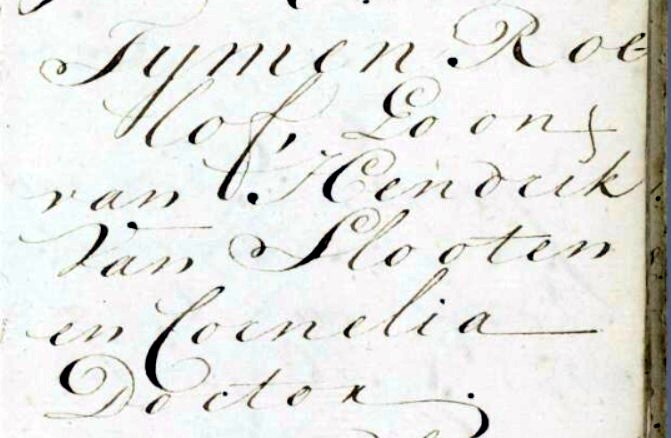 Tymen Roe
lof, Zoon
van Hendrik
Van Slooten
en Cornelia
Doctor.